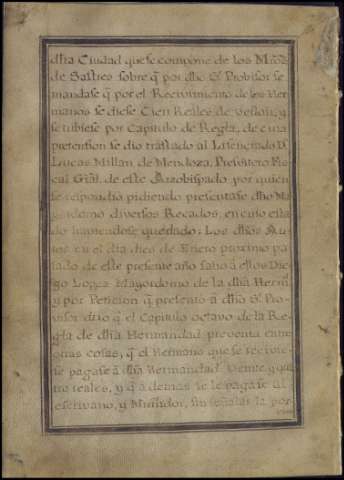 dha Ciudad que se compone de los Mros
de Sastres sobre q̃ por dho Sr Provisor se
mandase q̃ por el Recivimiento de los Her
manos se diese Cien Reales de Vellon, y
se tubiese por Capitulo de Regla, de cuia
pretension se dio traslado al Lisenciado Dn
Lucas Millan de Mendoza, Presvitero Fis
cal Gral. de este Arzobispado por quien
se respondio pidiendo presentase dho Ma
iordomo diversos Recados, en cuio esta
do haviendose quedado; Los dhos Au
tos en el dia dies de Enero proximo pa
sado de este presente año salio á ellos Die
go Lopez Mayordomo de la dha Hermd
y por Peticion q̃ presento á dho Sr Pro
visor dixo q̃ el Capitulo octavo de la Re
gla de dha Hermandad prevenia entre
otras cosas, q̃ el Hermano que se recivie
se pagase á dha Hermandad Veinte y qua
tro reales, y q̃ á demas se le pagase al
escrivano, y Muñidor, sin señalar la por